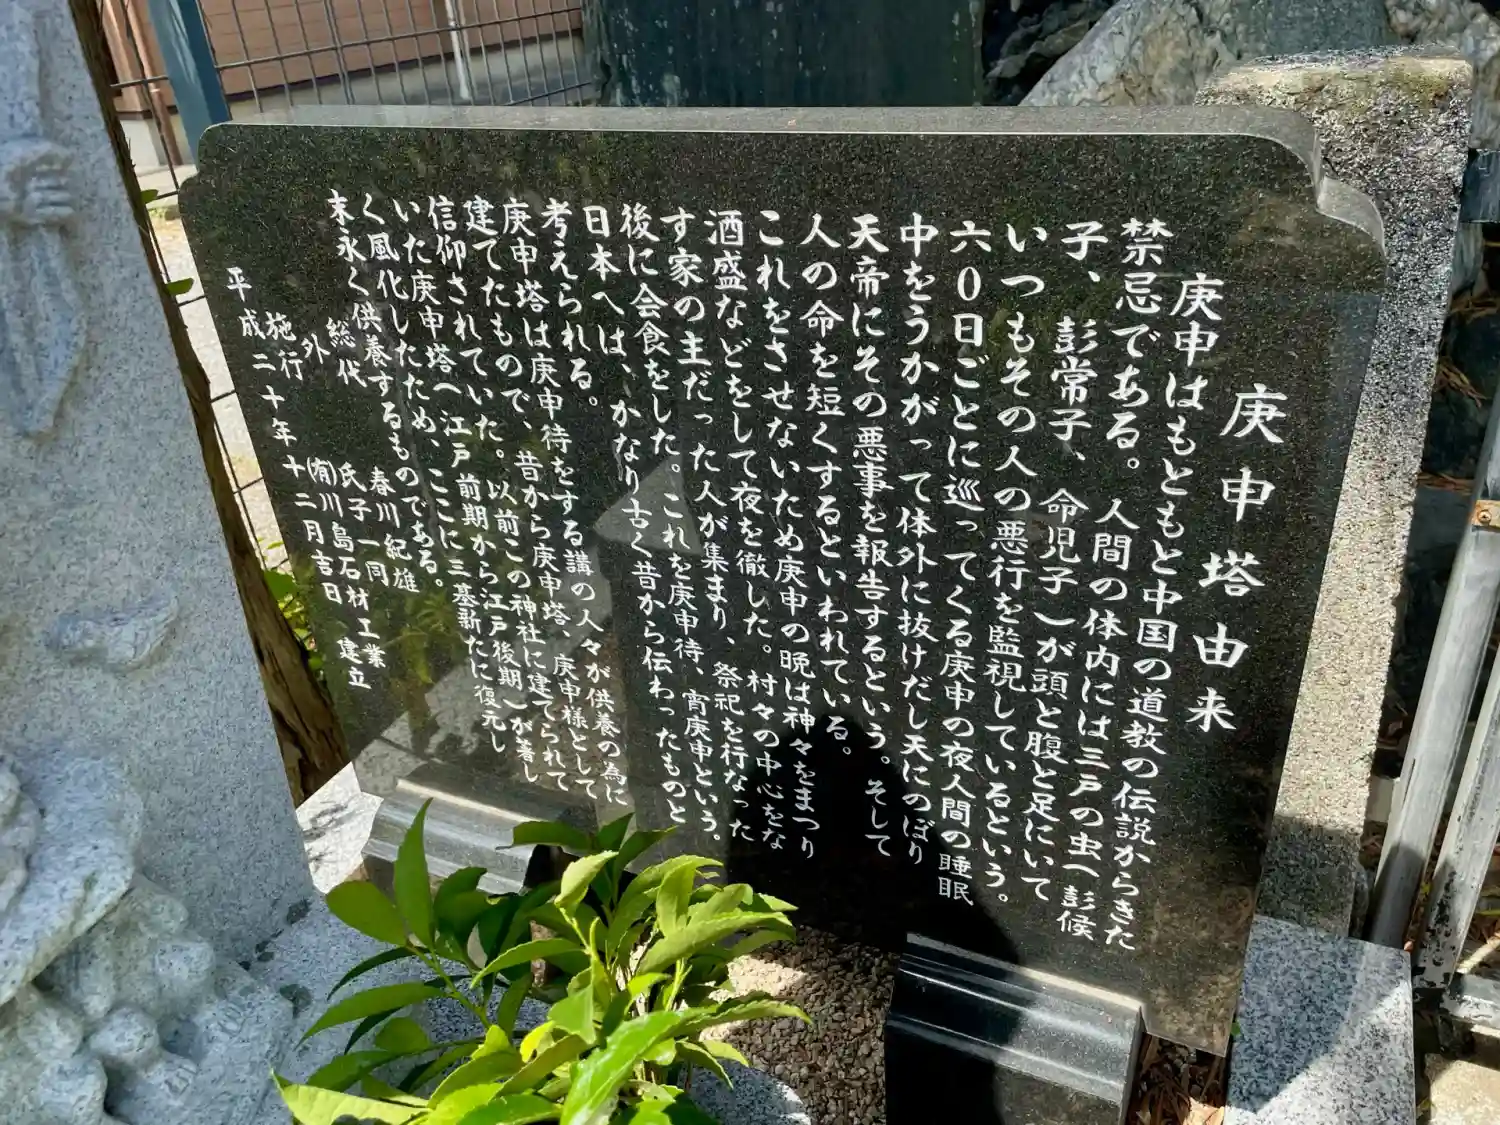 庚申塔由来
庚申はもともと中国の道教の伝説からきた
禁忌である。人間の体内には三戸の虫(彭候
子、彭常子、命児子)が頭と腹と足にいて
いつもその人の悪行を監視しているという。
六０日ごとに巡ってくる庚申の夜人間の睡眠
中をうかがって体外に抜けだし天にのぼり
天帝にその悪事を報告するという。そして
人の命を短くするといわれている。
これをさせないため庚申の晩は神々をまつり
酒盛などをして夜を徹した。村々の中心をな
す家の主だった人が集まり、祭祀を行なった
後に会食をした。これを庚申待、宵庚申という。
日本へは、かなり古く昔から伝わったものと
考えられる。
庚申塔は庚申待をする講の人々が供養の為に
建てたもので、昔から庚申塔、庚申様として
信仰されていた。以前この神社に建てられて
いた庚申塔(江戸前期から江戸後期)が著し
く風化したため、ここに三基新たに復元し
末永く供養するものである。
総代 春川紀雄
外 氏子一同
施行 (有)川島石材工業
平成二十年十二月吉日 建立